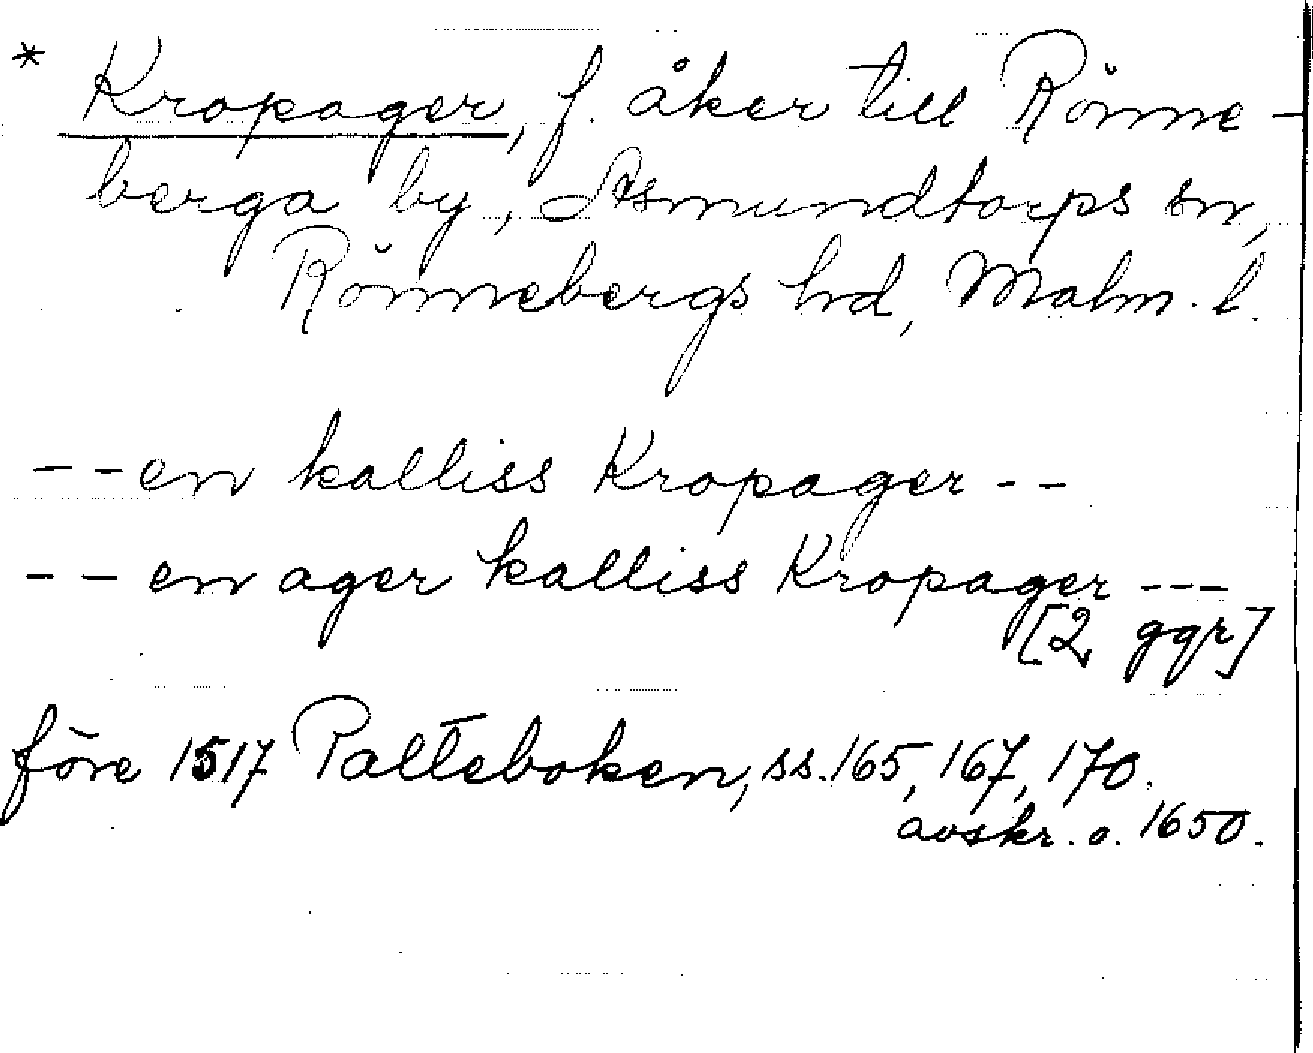 * Kropager, f. åker till Rönne-
berga by, Asmundtorps sn,
Rönnebergs hd, Malm. l.
-- en kalliss Kropager --
-- en ager kalliss Kropager ---
[2 ggr]
före 1517 Palteboken, ss. 165, 167, 170.
avskr. o. 1650.